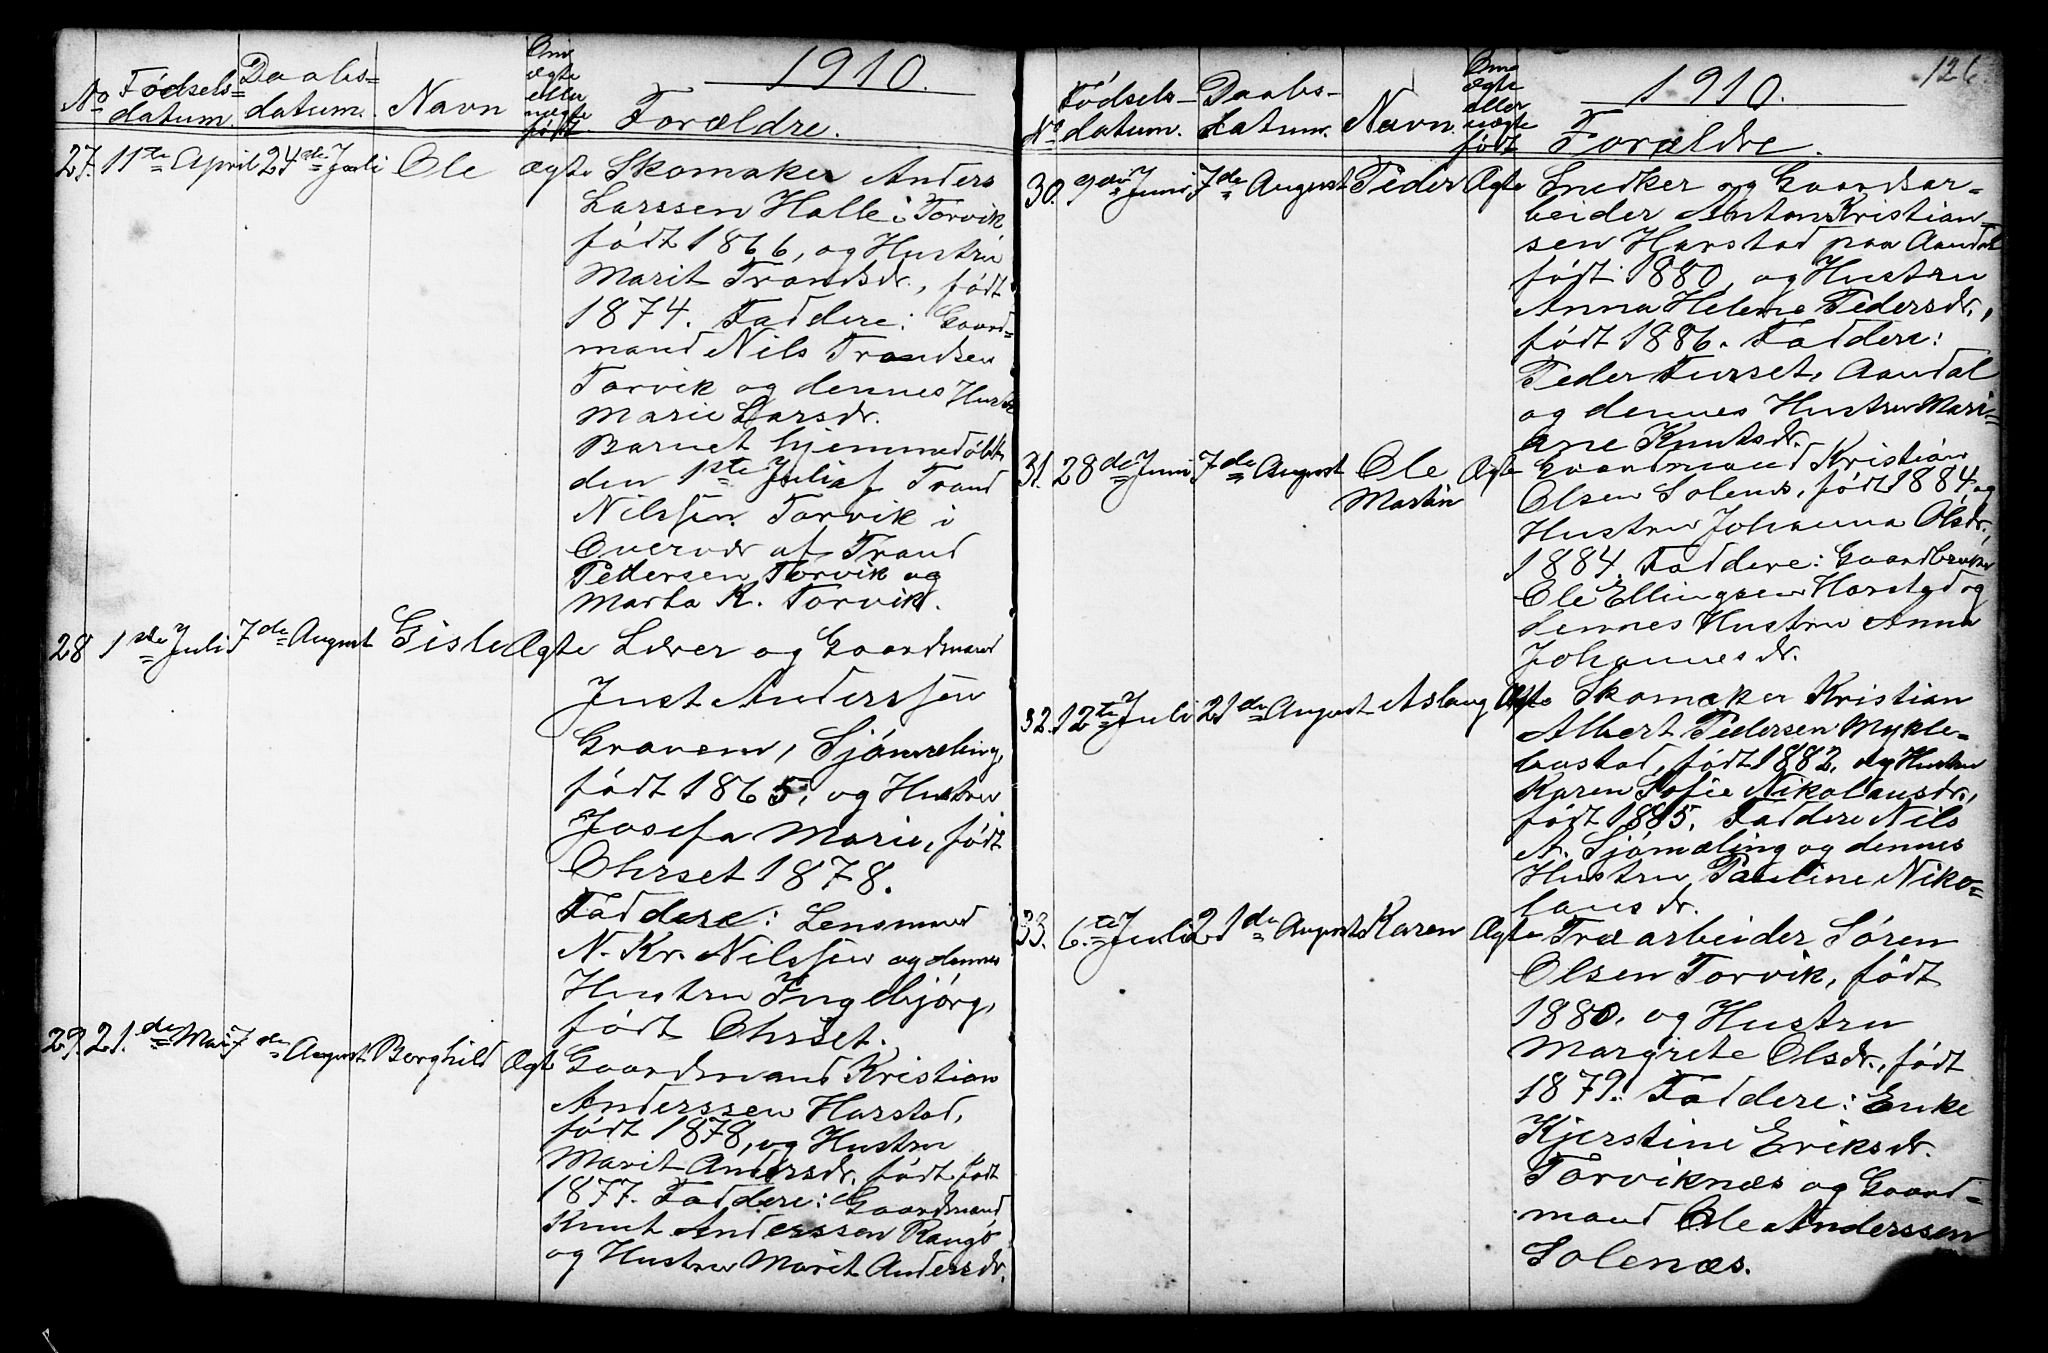 1910.
No
Fødsels=
datum.
Daabs=
datum.
Navn
Om
ægte
eller
uægte
født.
Forældre.
27. 11te April 24de Juli Ole ægte Skomaker Anders
Larssen Halle i Torvik
født 1866, og Hustru
Marit Trondsdr., født
1874. Faddere: Gaard=
mand Nils Trondsen
Torvik og dennes Hustr
Marie Larsdr.
Barnet hjemmedøbt
den 1ste Juli af Trond
Nilssen Torvik i
Overvær af Trond
Pettersen Torvik og
Marta K. Torvik.
28 1ste Juli 7de August Gisle Ægte Lærer og Gaardmand
Just Anderssen
Gravem, Sjømæling,
født 1865, og Hustru
Josefa Marie, født
Ohrset 1878.
Faddere: Lensmand
N. Kr. Nilssen og dennes
Hustru Ingebjørg,
født Ohrset.
29. 21.de Mai 7de August Borghild Ægte Gaardmand Kristian
Anderssen Harstad,
født 1878, og Hustru
Marit Andersdr. født født
1877. Faddere: Gaardmand
Knut Anderssen Raugø
og Hustru Marit Andersdr.
126
1910.
No
Fødsels-
datum.
Daabs-
datum.
Navn
Om
ægte
eller
uægte
født
Forældre.
30. 9de Juni 7de August Peder Ægte Snedker og Gaardsar=
beider Anton Kristian=
sen Harstad paa Aandal
født 1880, og Hustru
Anna Helene Pedersdr.,
født 1886. Faddere:
Peder Furset, Aandal
og dennes Hustru Mari=
ane Knutsdr.
31. 28de Juni 7de August Ole Ægte Gaardmand Kristian
Martin
Olsen Solenæs, født 1884, og
Hustru Johanna Olsdr.,
1884. Faddere: Gaardbruker
Ole Ellingsen Harstad og
dennes Hustru Anna
Johannesdr.
32. 12te Juli 21de August Aslaug Ægte Skomaker Kristian
Albert Pedersen Mykle=
bostad, født 1882, og Hustru
Karen Sofie Nikolausdr.,
født 1885. Faddere Nils
A. Sjømæling og dennes
Hustru Pauline Niko=
lausdr.
33. 6.te Juli 21de August Karen Ægte Træarbeider Søren
Olsen Torvik, født
1880, og Hustru
Margrete Olsdr., født
1879. Faddere: Enke
Kjerstine Eriksdr.
Torviknæs og Gaard=
mand Ole Anderssen
Solenæs.